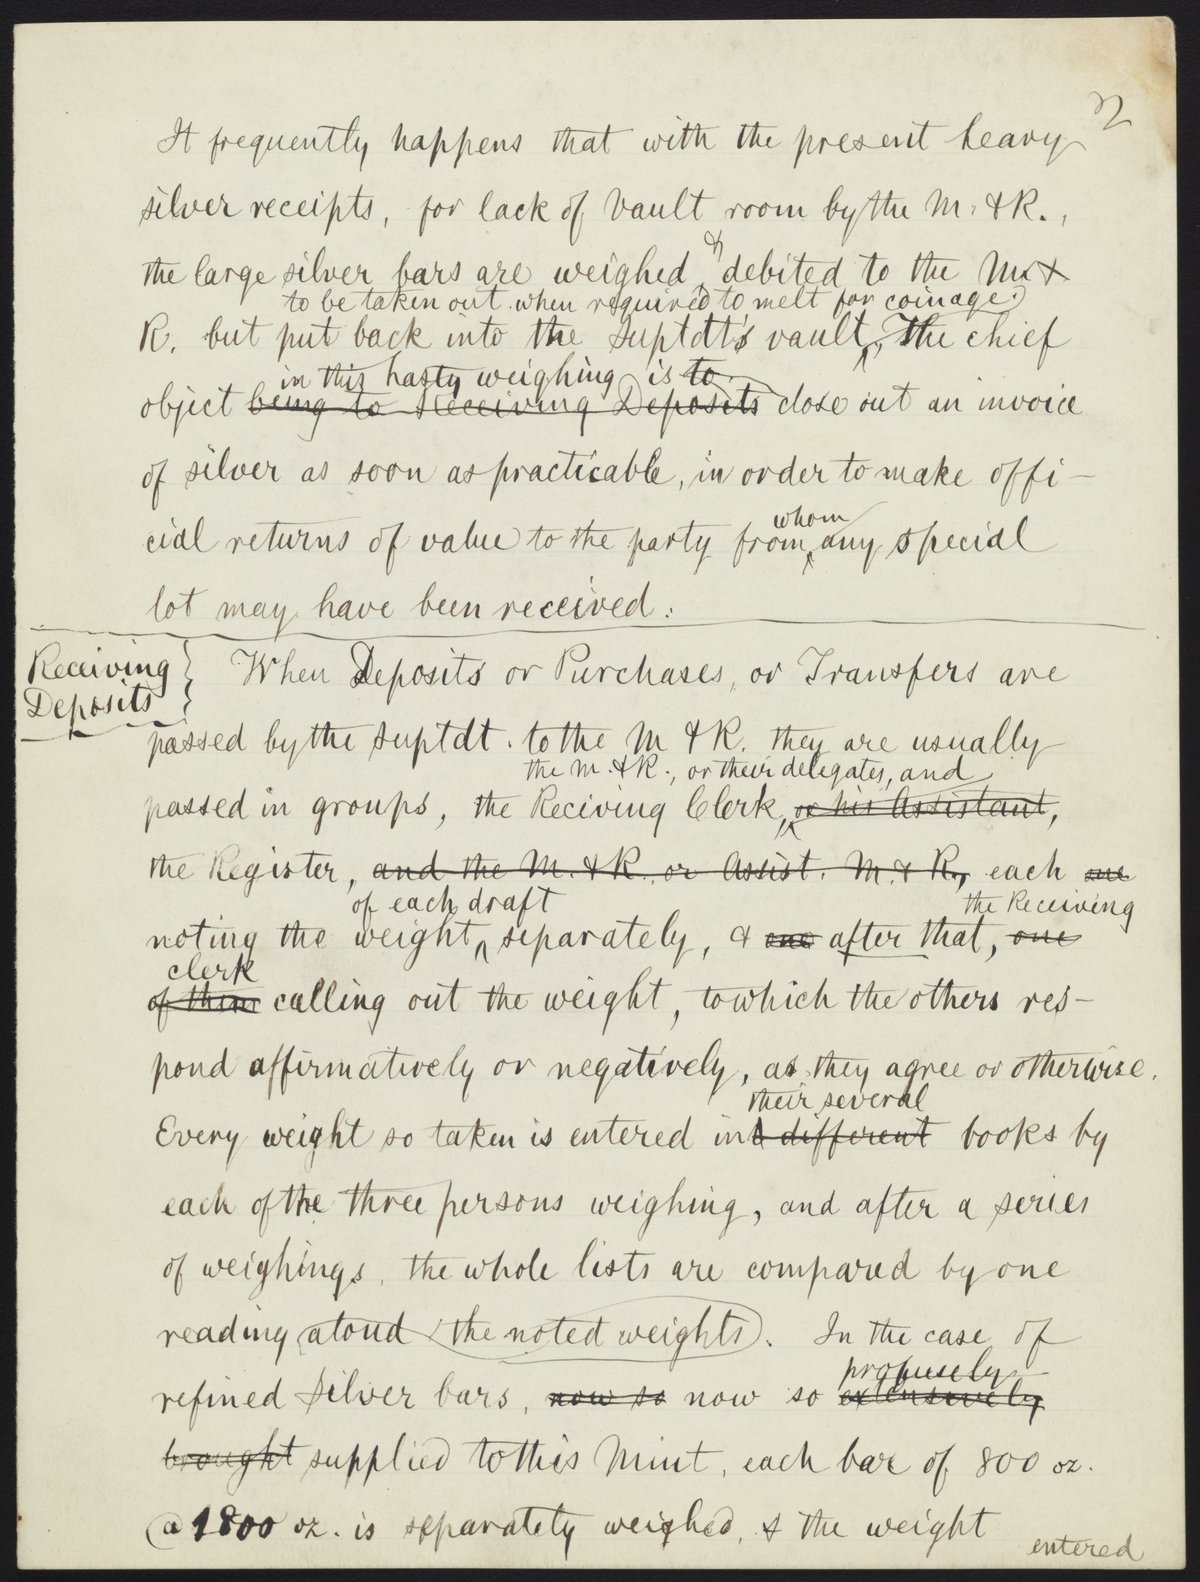 2
It frequently happens that with the present heavy
silver receipts, for lack of vault room by the M. & R.,
&
the large silver bars are weighed, debited to the M. &
to be taken out when required to melt for coinage.
R. but put back into the Suptdt's vault, The chief
in this hasty weighing is to
object being to Receiving Deposits close out an invoice
of silver as soon as practicable, in order to make offi-
cial returns of value to the party from any special
whom
lot may have been received.
Receiving
Deposits
When Deposits or Purchases, or Transfers are
passed by the Suptdt. to the M & R. they are usually
the M. & R., or their delegates, and
passed in groups, the Reciving Clerk, or his Assistant,
the Register, and the M. & R. or Assist. M. & R., each one
of each draft the Receiving
noting the weight separately, & one after that, one
clerk
of them calling out the weight, to which the others res-
pond affirmatively or negatively, as they agree or otherwise.
their several
Every weight so taken is entered in different books by
each of the three persons weighing, and after a series
of weighings, the whole lists are compared by one
reading aloud (the noted weights). In the case of
profusely
refined Silver bars, now so now so extensively
brought supplied to this Mint, each bar of 800 oz.
@ 1800 oz. is separately weighed, & the weight
entered